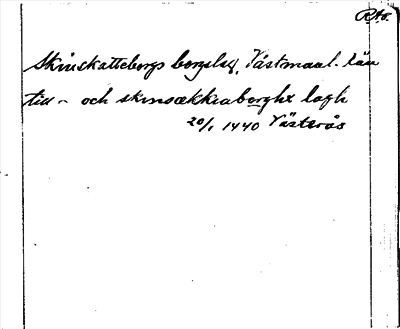 R.A.
Skinskattebergs bergslag, Västmanl. län
till – och skinsækkiaberghx lagh
20/1 1440 Västerås